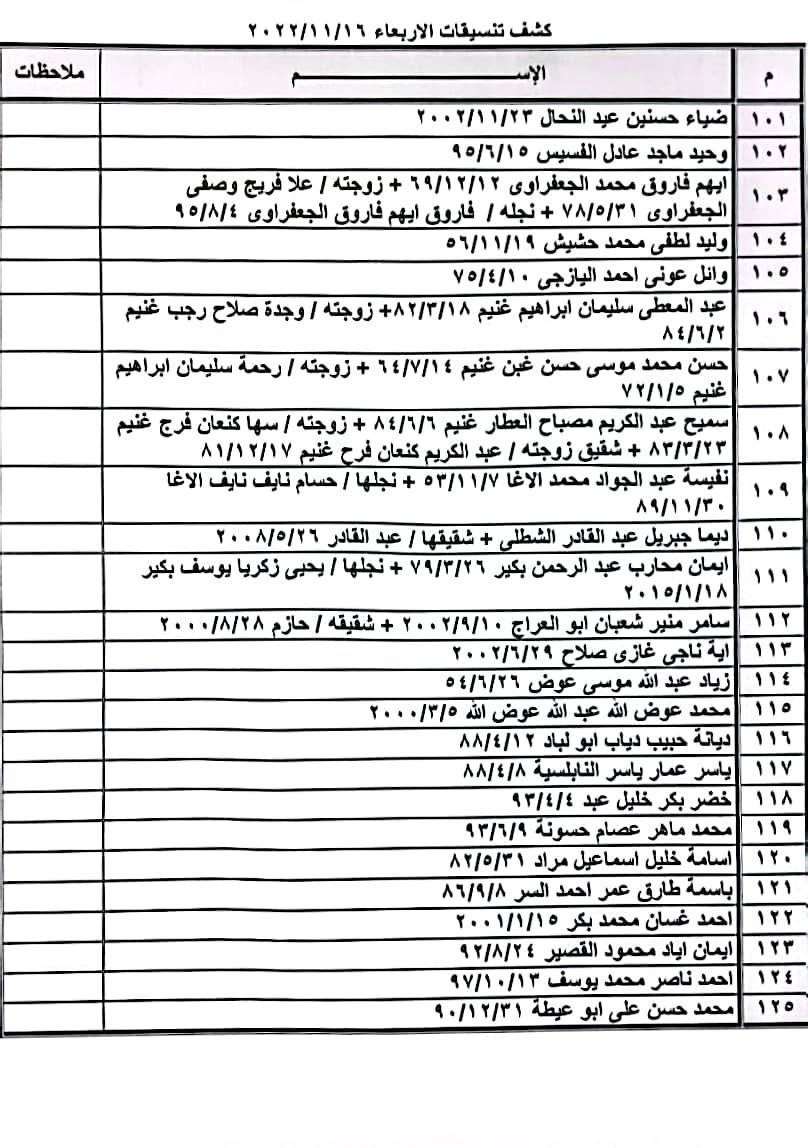 كشف تنسيقات الاربعاء ٢٠٢٢/١١/١٦
م الإســـــــــــــــم ملاحظات
١٠١ ضياء حسنين عيد النحال ٢٠٠٢/١١/٢٣
١٠٢ وحيد ماجد عادل الفسيس ٩٥/٦/١٥
١٠٣ ايهم فاروق محمد الجعفراوى ٦٩/١٢/١٢ + زوجته / علا فريج وصفى
الجعفراوى ٧٨/٥/٣١ + نجله / فاروق ايهم فاروق الجعفراوى ٩٥/٨/٤
١٠٤ وليد لطفى محمد حشيش ٥٦/١١/١٩
١٠٥ وائل عونى احمد اليازجى ٧٥/٤/١٠
١٠٦ عبد المعطى سليمان ابراهيم غنيم ٨٢/٣/١٨+ زوجته / وجدة صلاح رجب غنيم
٨٤/٦/٢
١٠٧ حسن محمد موسى حسن غبن غنيم ٦٤/٧/١٤ + زوجته / رحمة سليمان ابراهيم
غنيم ٧٢/١/٥
١٠٨ سميح عبد الكريم مصباح العطار غنيم ٨٤/٦/٦ + زوجته / سها كنعان فرج غنيم
٨٣/٣/٢٣ + شقيق زوجته / عبد الكريم كنعان فرح غنيم ٨١/١٢/١٧
١٠٩ نفيسة عبد الجواد محمد الاغا ٥٣/١١/٧ + نجلها / حسام نايف نايف الاغا
٨٩/١١/٣٠
١١٠ ديما جبريل عبد القادر الشطلى + شقيقها / عبد القادر ٢٠٠٨/٥/٢٦
١١١ ايمان محارب عبد الرحمن بكير ٧٩/٣/٢٦ + نجلها / يحيى زكريا يوسف بكير
٢٠١٥/١/١٨
١١٢ سامر منير شعبان ابو العراج ٢٠٠٢/٩/١٠ + شقيقه / حازم ٢٠٠٠/٨/٢٨
١١٣ اية ناجى غازى صلاح ٢٠٠٢/٦/٢٩
١١٤ زياد عبد الله موسى عوض ٥٤/٦/٢٦
١١٥ محمد عوض الله عبد الله عوض الله ٢٠٠٠/٣/٥
١١٦ ديانة حبيب دياب ابو لباد ٨٨/٤/١٢
١١٧ ياسر عمار ياسر النابلسية ٨٨/٤/٨
١١٨ خضر بكر خليل عبد ٩٣/٤/٤
١١٩ محمد ماهر عصام حسونة ٩٣/٦/٩
١٢٠ اسامة خليل اسماعيل مراد ٨٢/٥/٣١
١٢١ باسمة طارق عمر احمد السر ٨٦/٩/٨
١٢٢ احمد غسان محمد بكر ٢٠٠١/١/١٥
١٢٣ ايمان اياد محمود القصير ٩٢/٨/٢٤
١٢٤ احمد ناصر محمد يوسف ٩٧/١٠/١٣
١٢٥ محمد حسن على ابو عيطة ٩٠/١٢/٣١